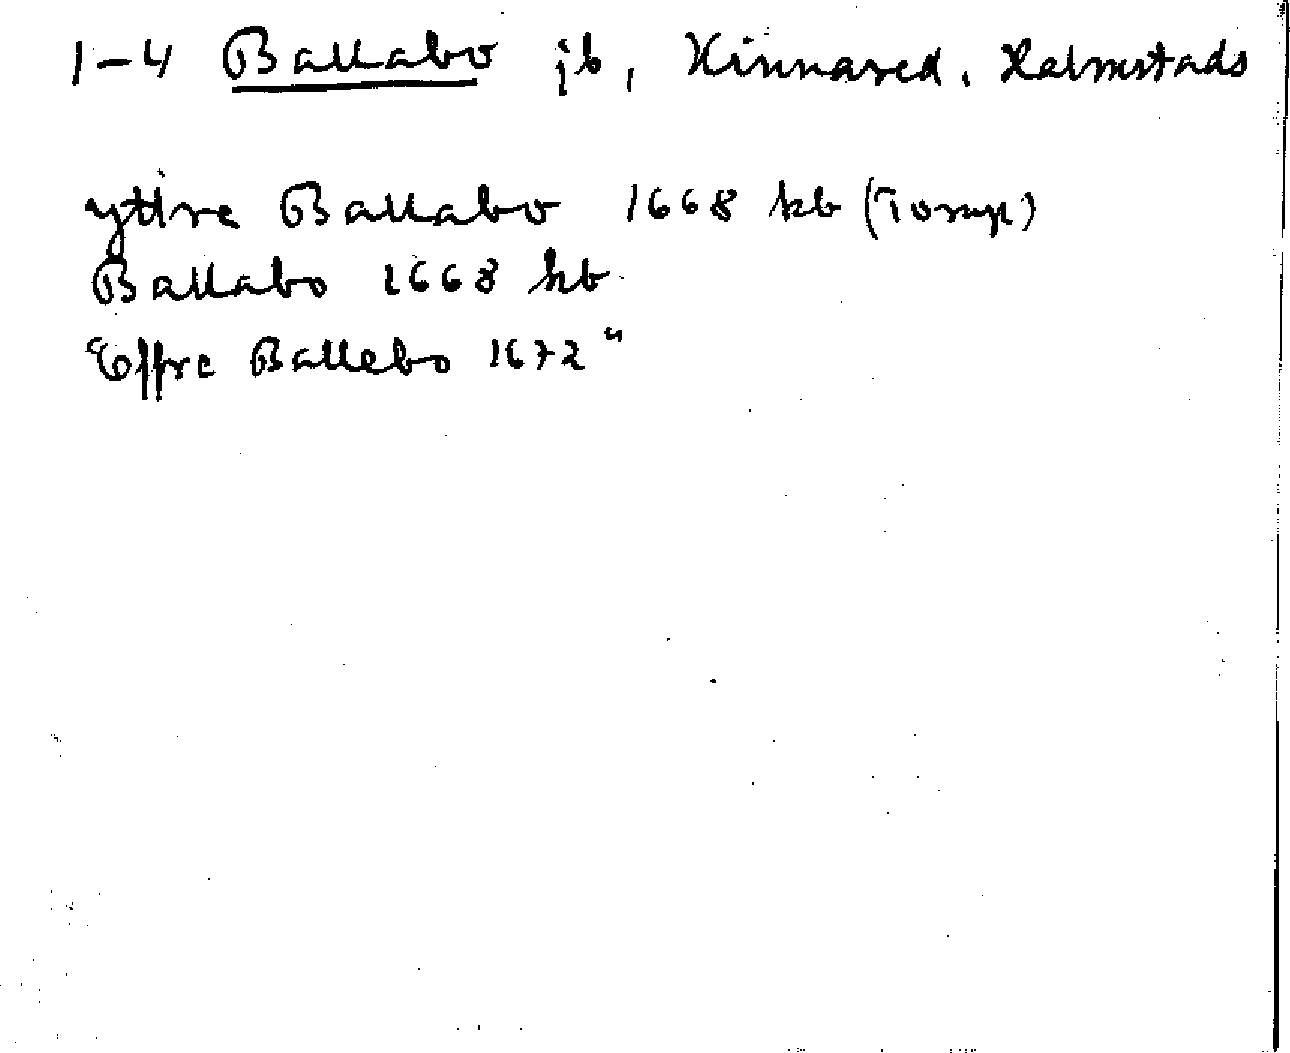 1-4 Ballabo jb, Kinnared, Halmstads
yttre Ballabo 1668 kb (Torup)
Ballabo 1668 kb
Effre Ballebo 1672 "